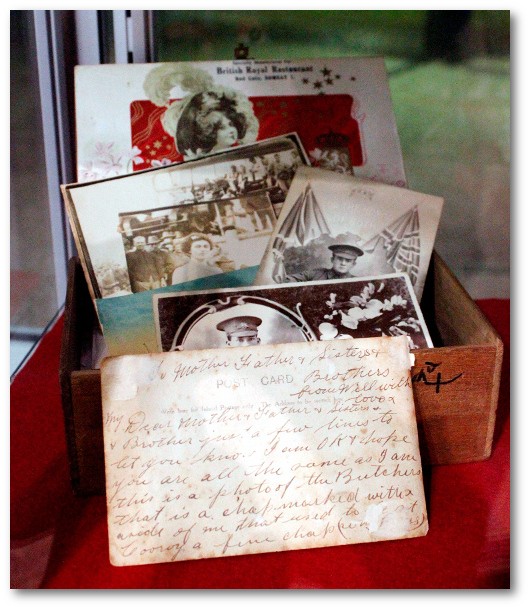 British Royal Restaurant
To Mother Father & Sisters &
Brothers
POST CARD
from Will with
love
My Dear Mother & Father & Sisters
& Brother just a few lines to
let you know I am OK & hope
you are all the same as I am
this is a photo of the Butchers
that is a chap marked with a
side of me that used to
a fine chap